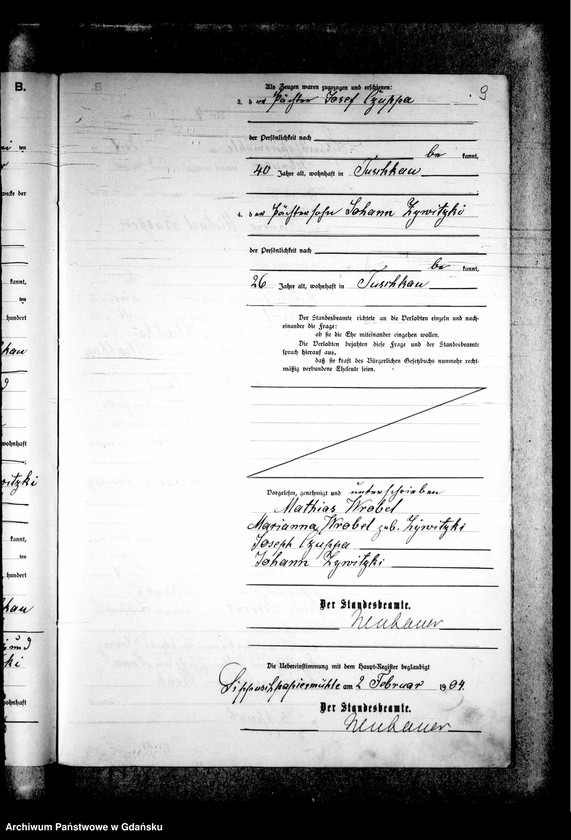 B.
9
Als Zeugen waren zugezogen und erschienen:
3. der Pächter Josef Czuppa
der Persönlichkeit nach
be kannt,
40 Jahre alt, wohnhaft in Tuschkau
4. der Pächtersohn Johann Zywitzki
der Persönlichkeit nach
be kannt,
26 Jahre alt, wohnhaft in Tuschkau
Der Standesbeamte richtete an die Verlobten einzeln und nach-
einander die Frage:
ob sie die Ehe miteinander eingehen wollen.
Die Verlobten bejahten diese Frage und der Standesbeamte
sprach hierauf aus,
daß sie kraft des Bürgerlichen Gesetzbuchs nunmehr recht-
mäßig verbundene Eheleute seien.
Vorgelesen, genehmigt und unterschrieben
Mathias Wrobel
Marianna Wrobel geb. Zywitzki
Joseph Czuppa
Johann Zywitzki
Der Standesbeamte.
Neubauer
Die Uebereinstimmung mit dem Haupt-Register beglaubigt
Lippuschpapiermühle am 2 Februar 1904.
Der Standesbeamte.
Neubauer
Archiwum Państwowe w Gdańsku